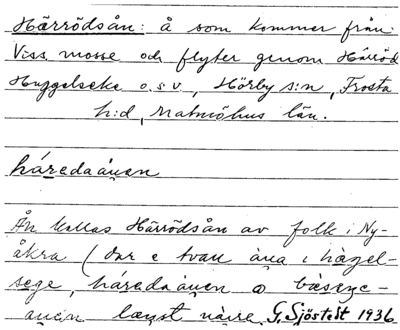 Härrödsån: å som kommer från
Viss mosse och flyter genom Härröd
Huggelseke o.s.v., Hörby s:n, Frosta
h:d, Malmöhus län.
háredaánen
Ån kallas Härrödsån av folk i Ny-
åkra (dar e tvau åna i hägel-
sege, háredaánen o
anen längst näire G. Sjöstedt 1936